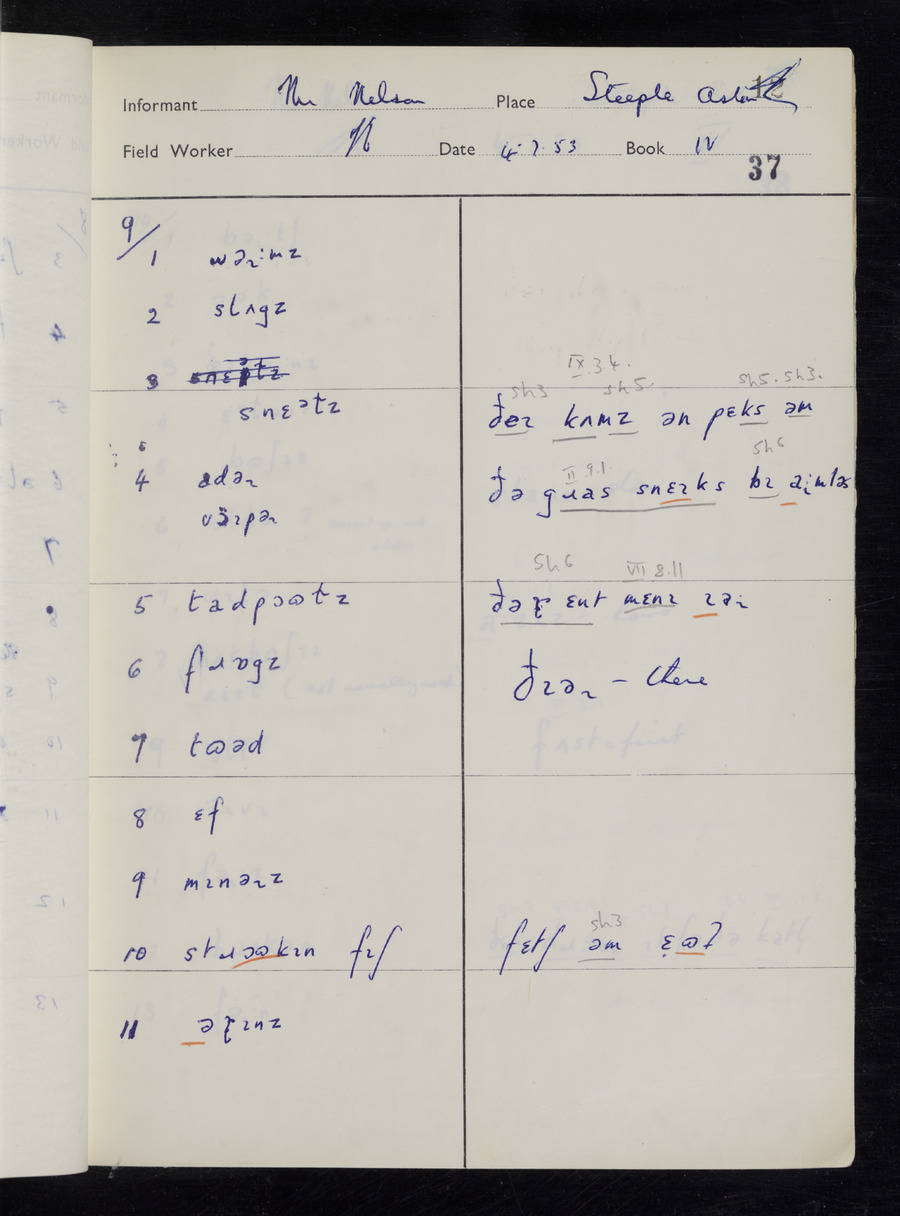 Informant Mr Nelson Place Steeple Aston
Field Worker Date 4.7.53 Book IV
37
9/
1 wəɻːmz
2 slʌgz
3
snɛətz
4 adəɻ
vɜɪpəɻ
5 tadpɔɷtz
6 fɹɒgz
7 tɷəd
8 ɛf
9 mɪnəɻz
10 stɹɔɷkɪn fɪʃ
11
IX.3.4.
sh3 sh5. sh5. sh3.
ðeɪ kʌmz ən pɛks əm
II 9.1. sh6
ðə gɹas snɛɪks bɪ
sh6 VII 8.11
ɛnt mɛnɪ
ðɪəɻ – there
sh3
fɛtʃ əm ɛɷʔ